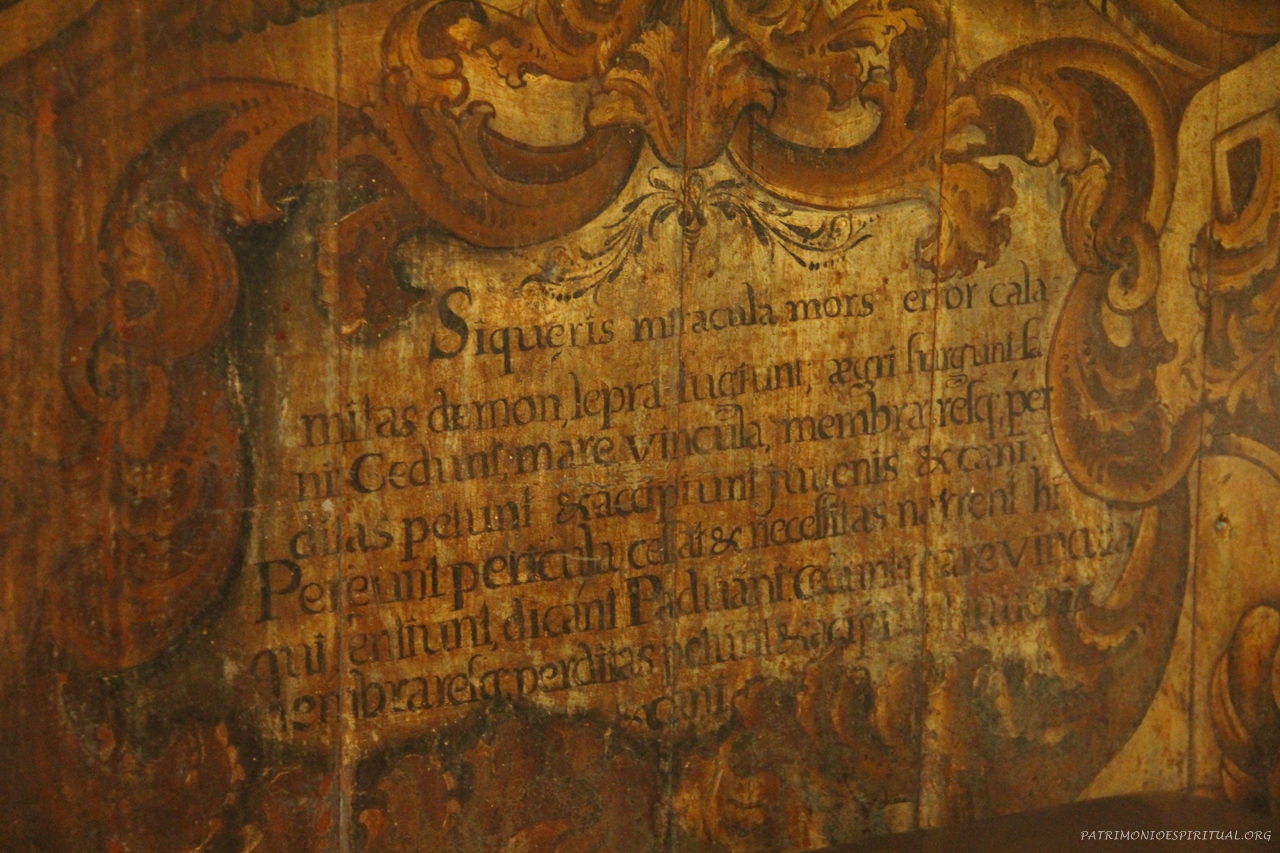 Siqueris miracula mors error cala-
mitas dæmon, lepra fugiunt, ægri surgunt sa
ni Cedunt, mare vincula, membra, resq, per
ditas petunt & accipiunt juuenis & cani.
Pereunt pericula cessat & necessitas narrent hi
qui sentiunt, dicant Paduani cedunt mare vincula
membra resq, perditas petunt & acipiunt juuenis
& cani.
PATRIMONIOESPIRITUAL.ORG